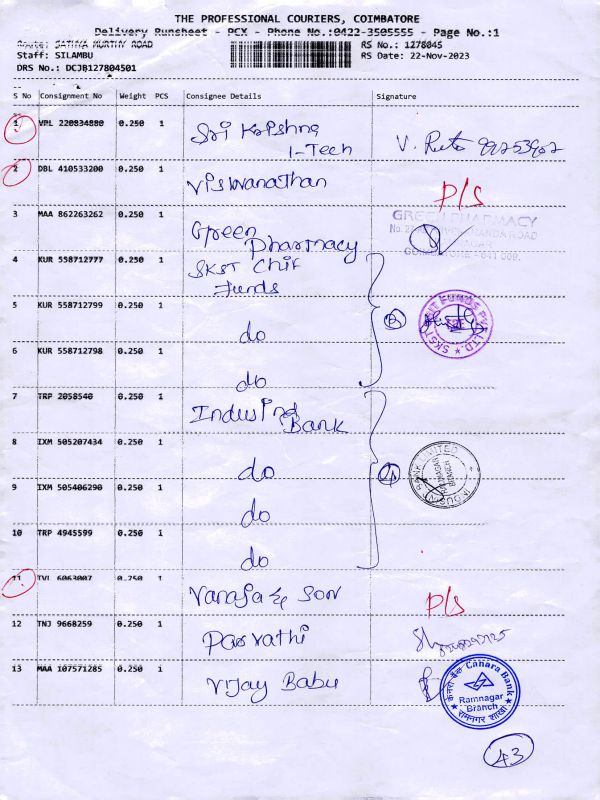 THE PROFESSIONAL COURIERS, COIMBATORE
Delivery Runsheet - PCX - Phone No.:0422-3505555 - Page No.:1
Route: SATHYA MURTHY ROAD
Staff: SILAMBU
DRS No.: DCJB127804501
RS No.: 1278045
RS Date: 22-Nov-2023
S No Consignment No Weight PCS Consignee Details Signature
1 VPL 220834880 0.250 1 Sri Krishna
I-Tech
V.
2 DBL 410533200 0.250 1 Viswanathan P/S
3 MAA 862263262 0.250 1 Green
Pharmacy
GREEN PHARMACY
COIMBATORE - 641 009.
4 KUR 558712777 0.250 1 SKST Chit
Funds
5 KUR 558712799 0.250 1 do
SKST CHIT FUNDS PVT LTD.
6 KUR 558712798 0.250 1 do
7 TRP 2058540 0.250 1 Indusind
Bank
8 IXM 505207434 0.250 1 do
INDUSIND BANK LIMITED
BRANCH
9 IXM 505406290 0.250 1 do
10 TRP 4945599 0.250 1 do
11 TVL 6063007 0.250 1 Vanaja & Son P/S
12 TNJ 9668259 0.250 1 Parvathi
13 MAA 107571285 0.250 1 Vijay Babu
केनरा बैंक Canara Bank
Ramnagar
Branch
रामनगर शाखा
43